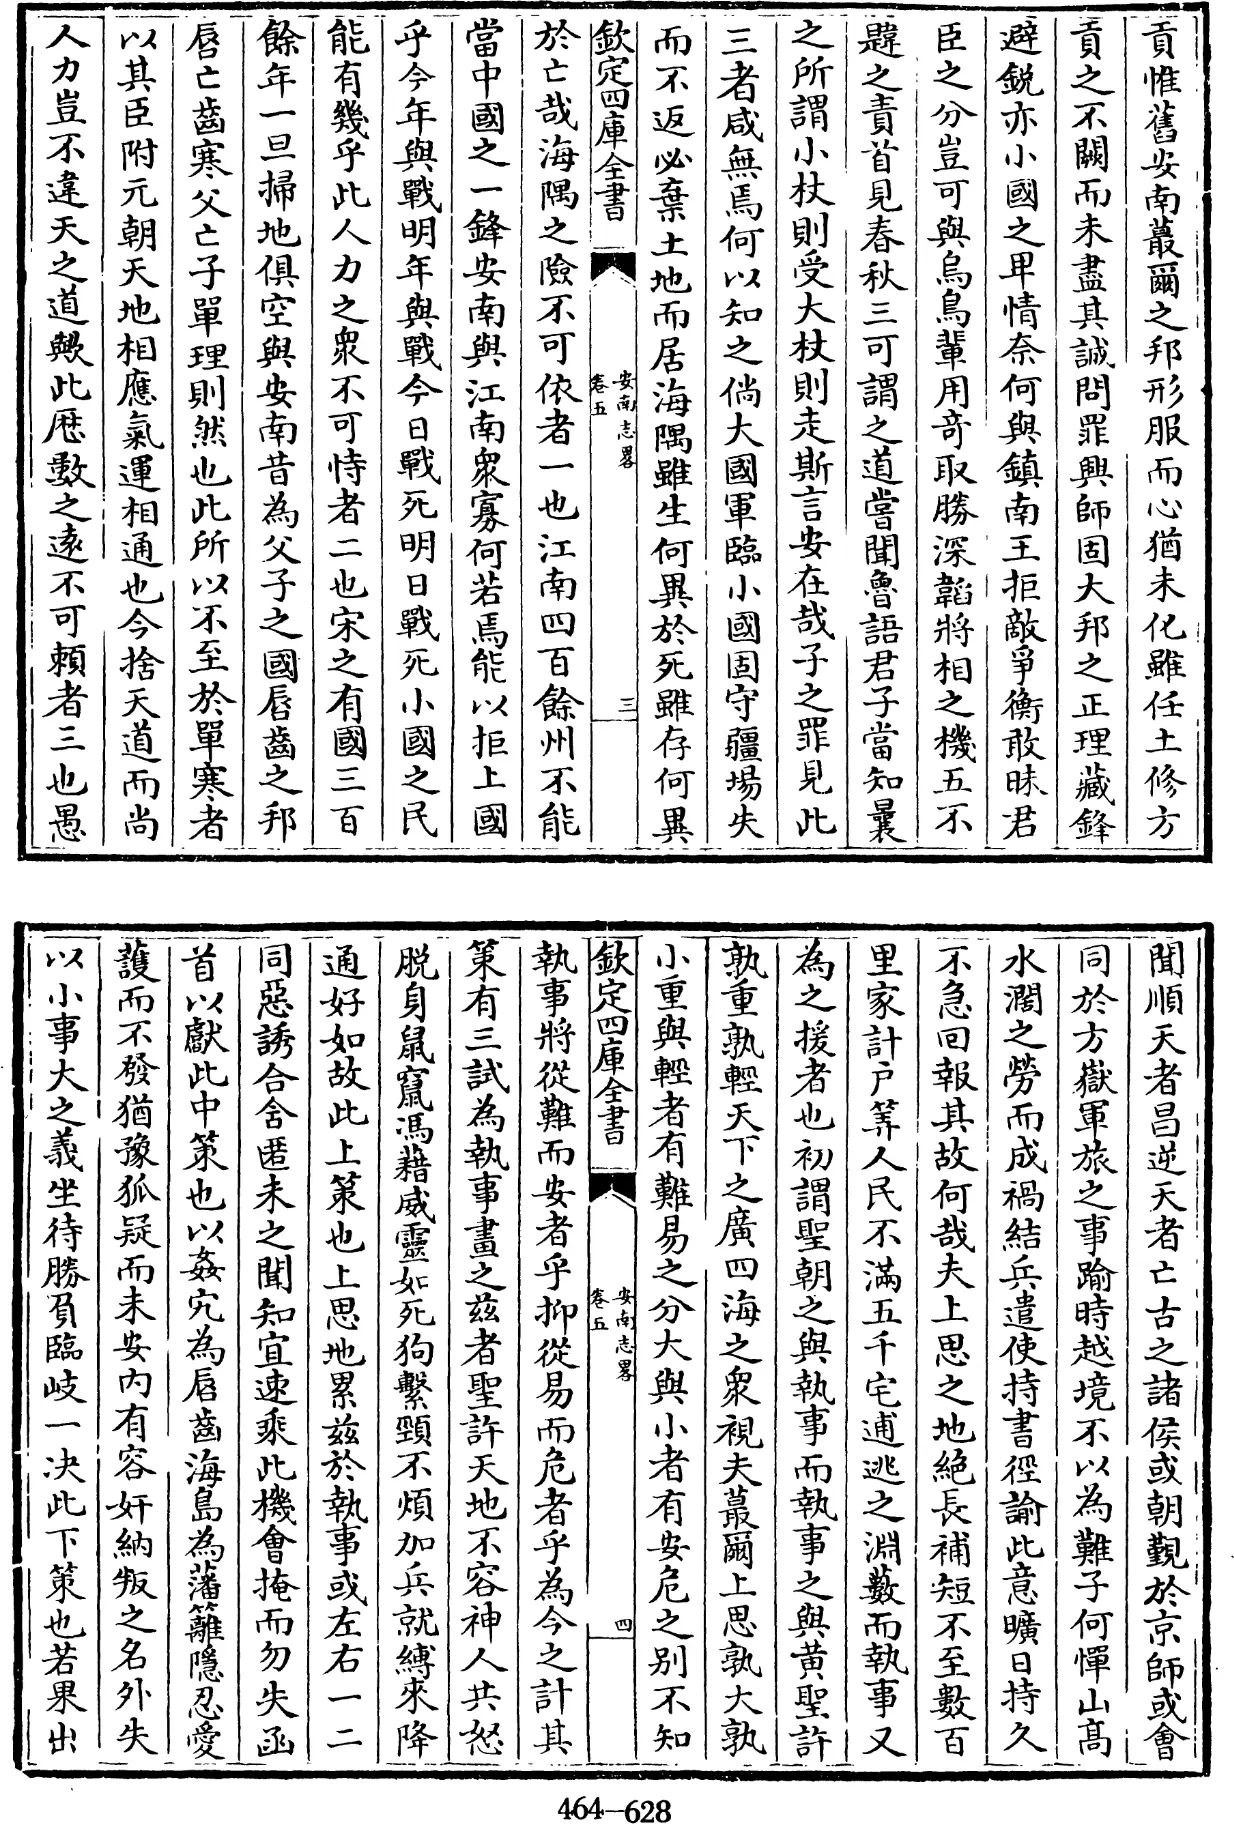 貢惟舊安南蕞爾之邦形服而心猶未化雖任土修方
貢之不闕而未盡其誠問罪興師固大邦之正理藏鋒
避銳亦小國之卑情奈何與鎮南王拒敵爭衡敢昧君
臣之分豈可與烏鳥輩用竒取勝深韜將相之機五不
韙之責首見春秋三可謂之道嘗聞魯語君子當知曩
之所謂小杖則受大杖則走斯言安在哉子之罪見此
三者咸無焉何以知之倘大國軍臨小國固守疆場失
而不返必棄土地而居海隅雖生何異於死雖存何異
欽定四庫全書
安南志畧
卷五
三
於亡哉海隅之險不可依者一也江南四百餘州不能
當中國之一鋒安南與江南衆寡何若焉能以拒上國
乎今年與戰明年與戰今日戰死明日戰死小國之民
能有幾乎此人力之衆不可恃者二也宋之有國三百
餘年一旦掃地俱空與安南昔為父子之國唇齒之邦
唇亡齒寒父亡子單理則然也此所以不至於單寒者
以其臣附元朝天地相應氣運相通也今捨天道而尚
人力豈不違天之道歟此厯數之逺不可頼者三也愚
聞順天者昌逆天者亡古之諸侯或朝覲於京師或會
同於方嶽軍旅之事踰時越境不以為難子何憚山髙
水濶之勞而成禍結兵遣使持書徑諭此意曠日持久
不急回報其故何哉夫上思之地絶長補短不至數百
里家計戸筭人民不滿五千宅逋逃之淵藪而執事又
為之援者也初謂聖朝之與執事而執事之與黄聖許
孰重孰輕天下之廣四海之衆視夫蕞爾上思孰大孰
小重與輕者有難易之分大與小者有安危之别不知
欽定四庫全書
安南志畧
卷五
四
執事將從難而安者乎抑從易而危者乎為今之計其
策有三試為執事畫之兹者聖許天地不容神人共怒
脱身鼠竄馮藉威靈如死狗繫頸不煩加兵就縛來降
通好如故此上策也上思地累兹於執事或左右一二
同惡誘合舍匿未之聞知宜速乘此機會掩而勿失函
首以獻此中策也以姦宄為唇齒海島為藩籬隱忍愛
護而不發猶豫狐疑而未安内有容奸納叛之名外失
以小事大之義坐待勝負臨岐一決此下策也若果出
464—628